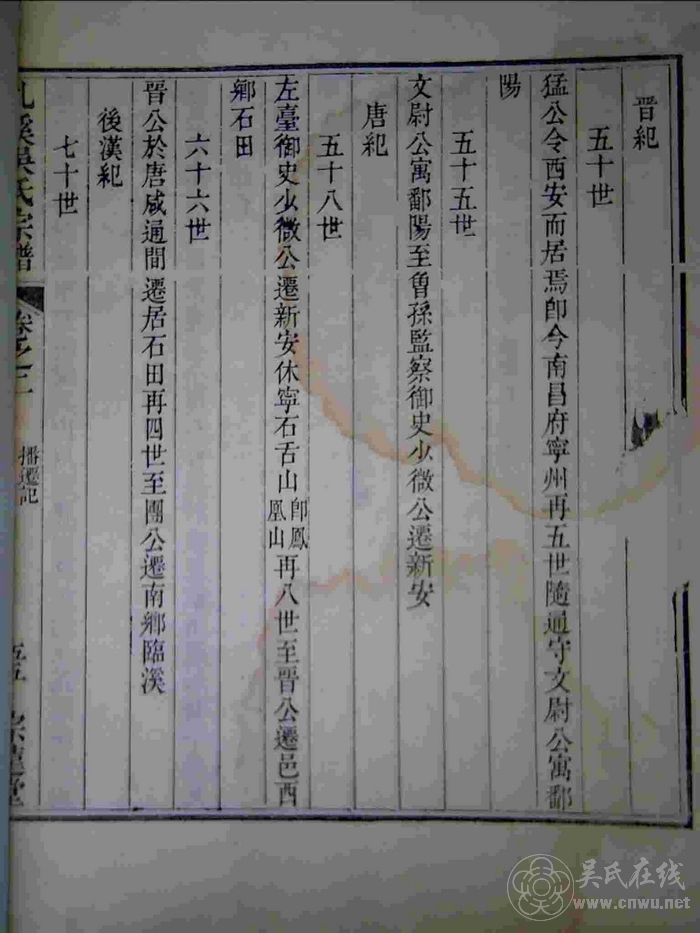 晋紀
五十世
猛公令西安而居焉卽今南昌府寧州再五世隨通守文尉公寓鄱
陽
五十五世
文尉公寓鄱陽至曾孫監察御史少微公遷新安
唐紀
五十八世
左臺御史少微公遷新安休寧石舌山卽鳳凰山再八世至晉公遷邑西
鄉石田
六十六世
晉公於唐咸通間遷居石田再四世至團公遷南鄉臨溪
後漢紀
七十世
溪吳氏宗譜
卷之二
播遷記
五
吴氏在线
www.cnwu.net